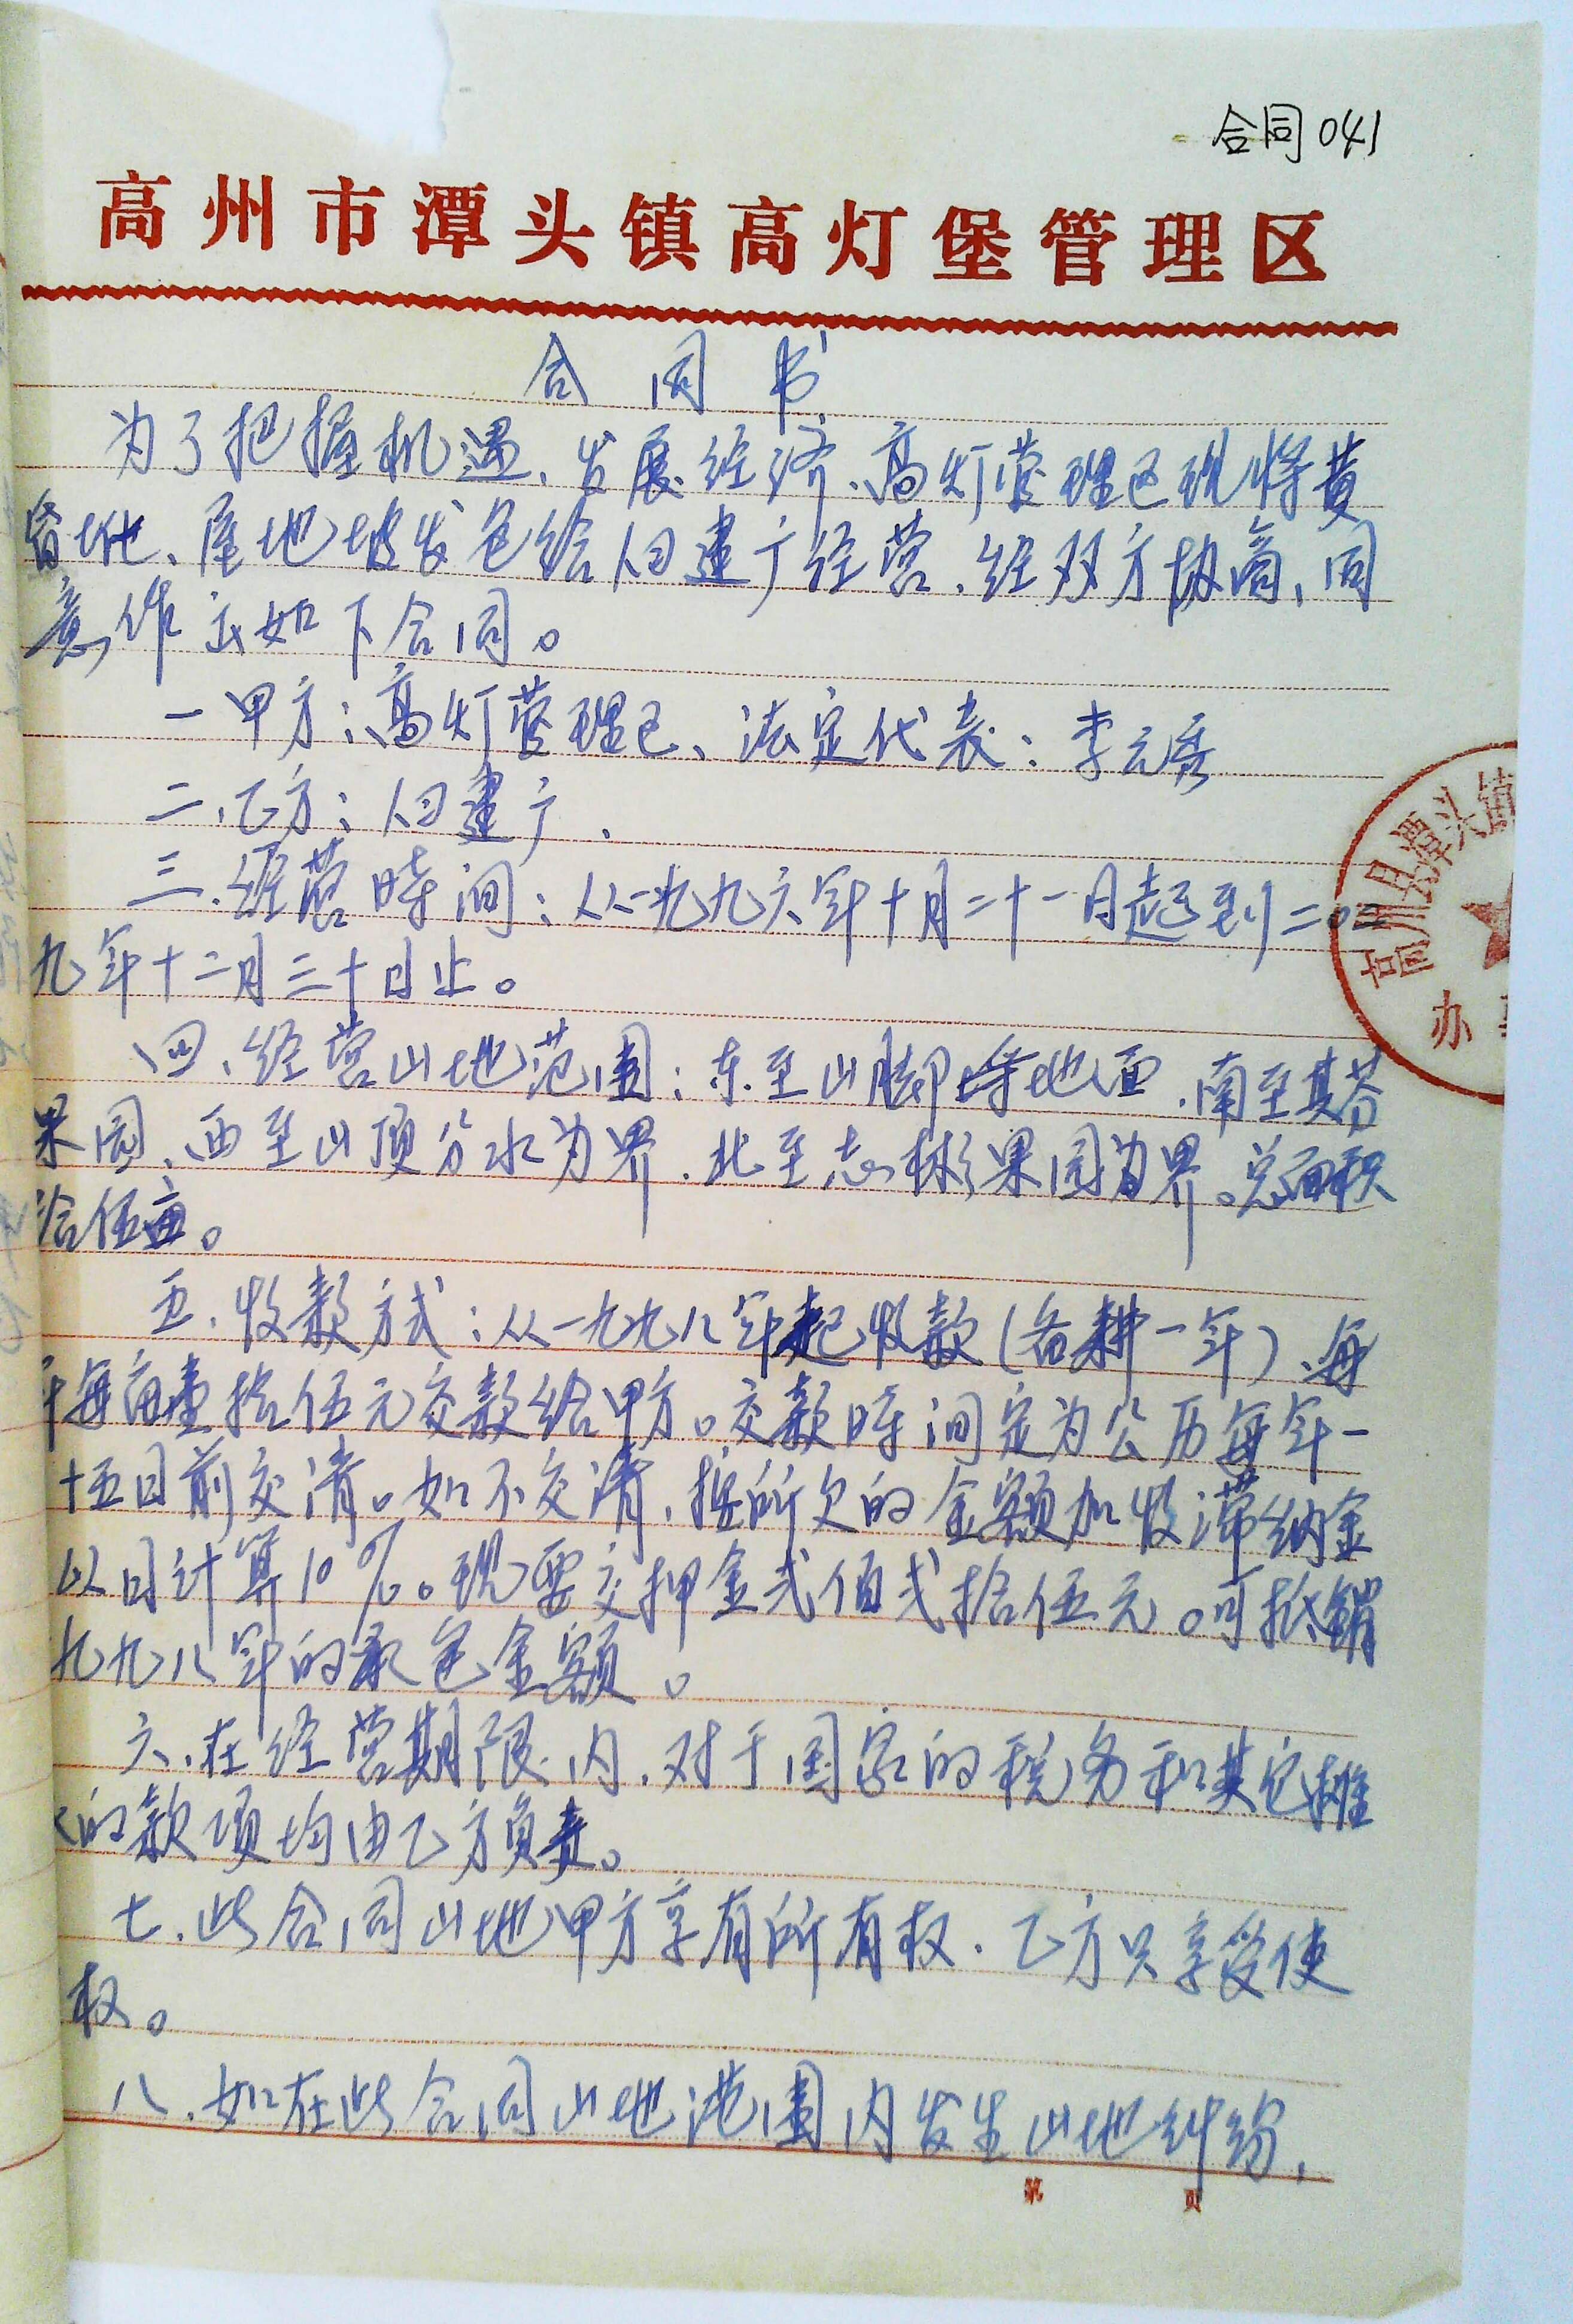 合同041
高州市潭头镇高灯堡管理区
合同书
为了把握机遇、发展经济、高灯管理区现将黄
地、屋地坡发包给 建广经营、经双方协商、同
意作出如下合同。
一甲方：高灯管理区、法定代表：李云
二、乙方： 建广、
三、经营时间：从一九九六年十月二十一日起到二0
九年十二月三十日止。
四、经营山地范围：东至山脚 地面、南至其芬
果园、西至山顶分水为界、北至志彬果园为界。总面积
拾伍亩。
五、收款方式：从一九九八年起收款（备耕一年）、每
年每亩壹拾伍元交款给甲方。交款时间定为公历每年一
十五日前交清。如不交清、按所欠的金额加收滞纳金
以日计算10%。现要交押金弍佰弍拾伍元。可抵销
九九八年的承包金额。
六、在经营期限内、对于国家的税务和其它摊
的款项均由乙方负责。
七、此合同山地甲方享有所有权、乙方只享受使
权。
八、如在此合同山地范围内发生山地纠纷，
第 页
高州县潭头镇
办